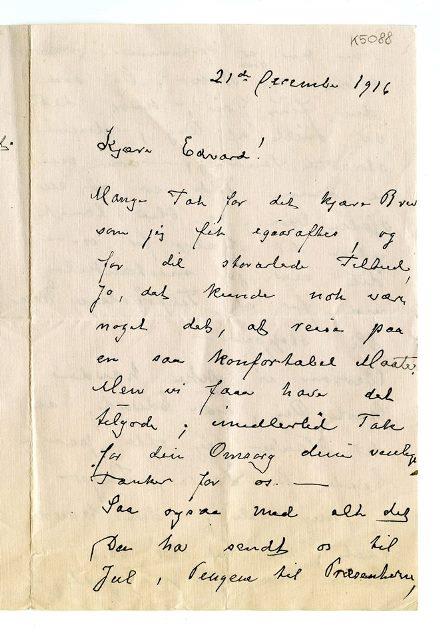 K5088
21de December 1916
Kjære Edvard!
Mange Tak for dit kjære Brev
som jeg fik igaaraftes, og
for dit storartede Tilbud,
Jo, det kunde nok være
noget det, at reise paa
en saa konfortabel Maate.
Men vi faar have det
tilgode; imidlertid Tak
for din Omsorg dine venlige
Tanker for os. —
Saa ogsaa med alt det
Du har sendt os til
Jul, Pengene til Præsenterne,